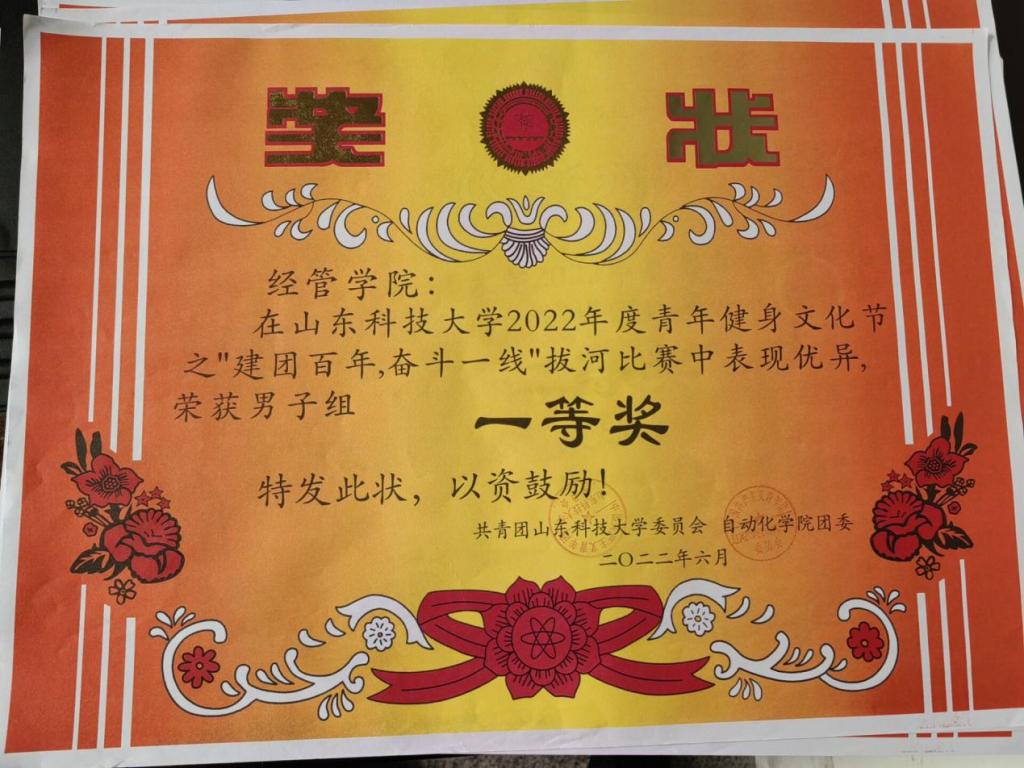 奖状
经管学院：
在山东科技大学2022年度青年健身文化节
之"建团百年,奋斗一线"拔河比赛中表现优异,
荣获男子组
一等奖
特发此状，以资鼓励！
共青团山东科技大学委员会 自动化学院团委
二〇二二年六月